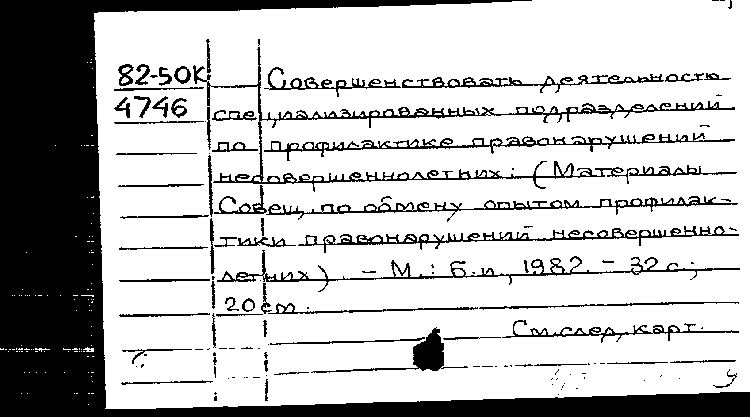 82-50К
4746
Совершенствовать деятельность
специализированных подразделений
по профилактике правонарушений
несовершеннолетних: (Материалы
Совещ. по обмену опытом профилак-
тики правонарушений несовершенно-
летних). - М.: Б.и., 1982. - 32 с.;
20 см.
См. след. карт.